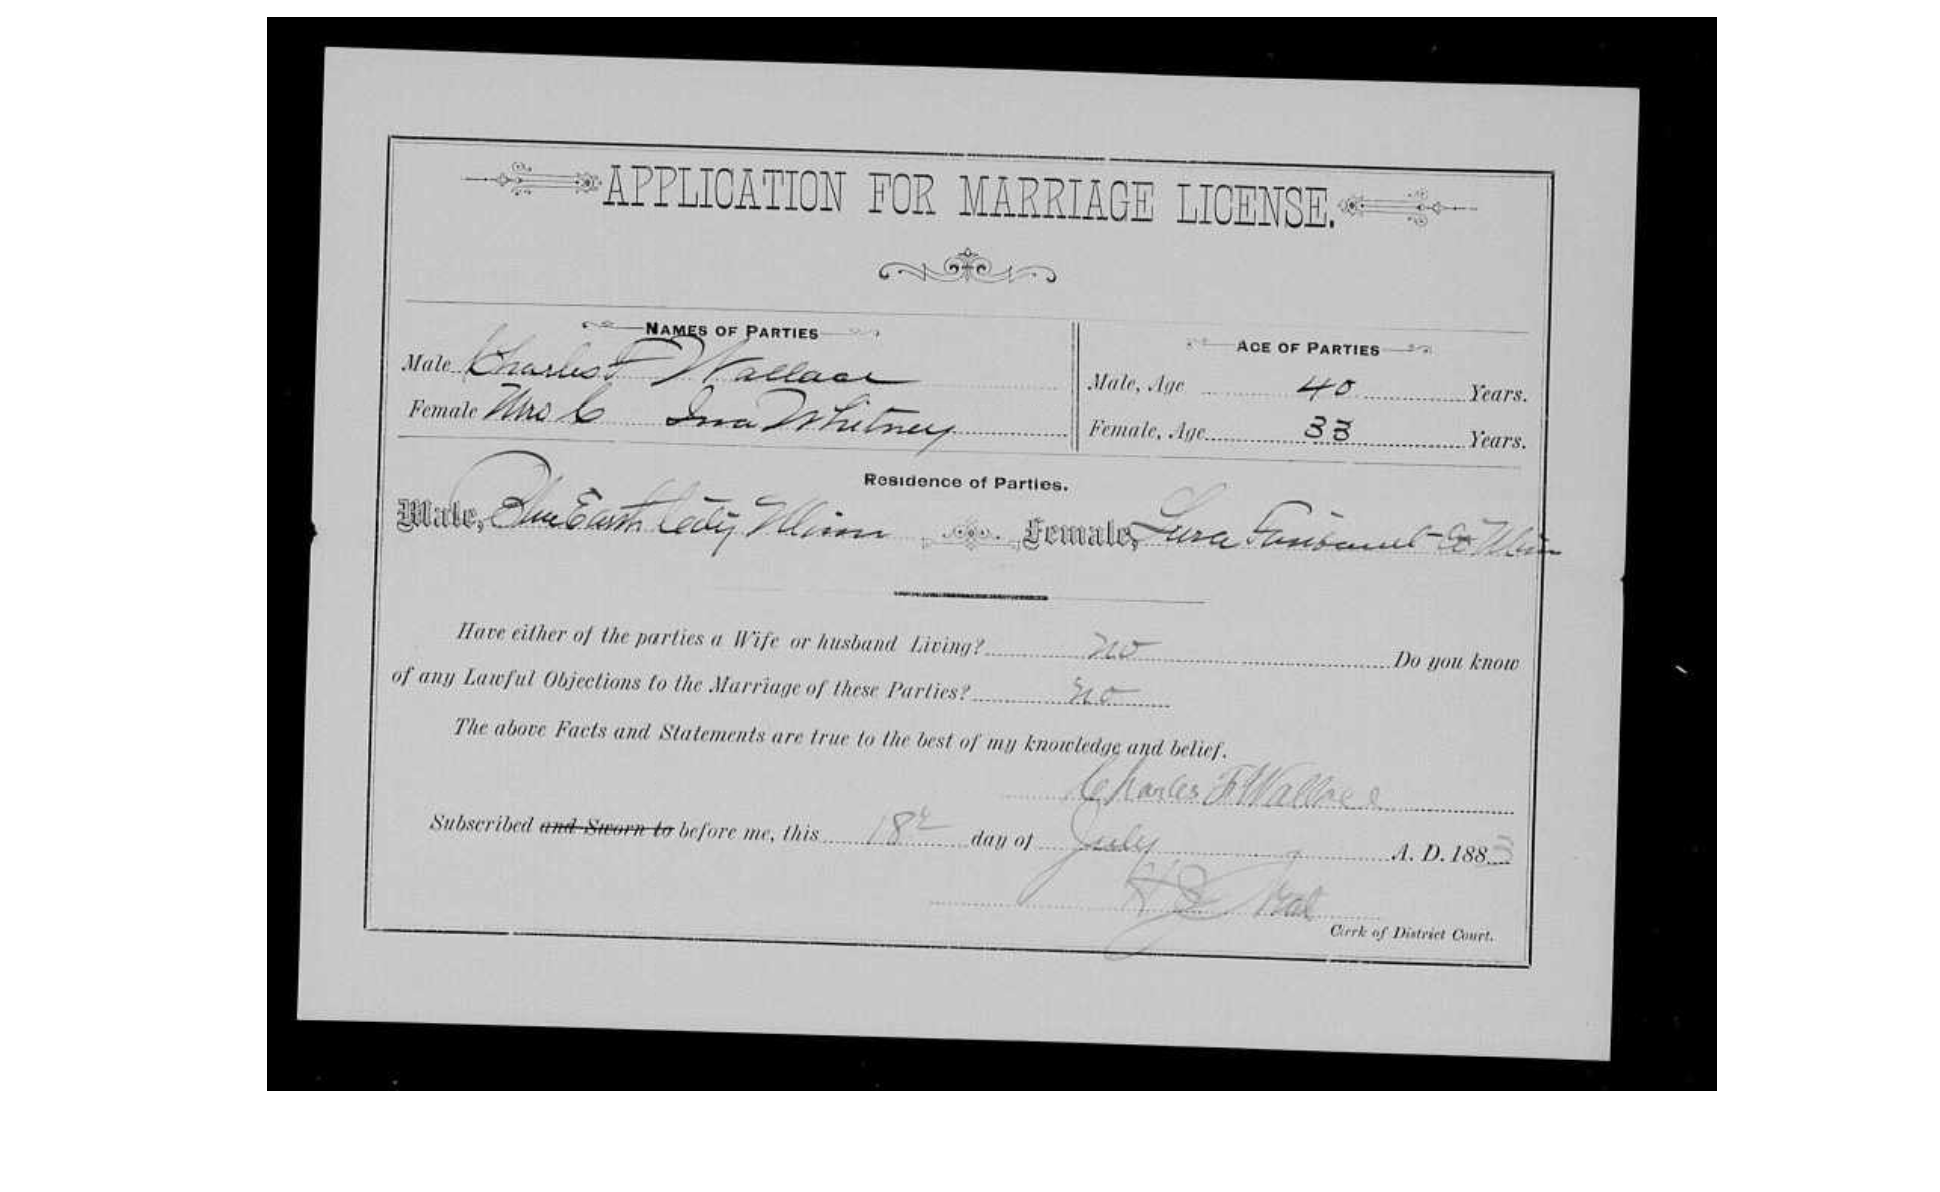 APPLICATION FOR MARRIAGE LICENSE.
NAMES OF PARTIES
Male Charles F Wallace
Female Mrs C Ina Whitney
AGE OF PARTIES
Male, Age 40 Years.
Female, Age 33 Years.
Residence of Parties.
Male, Blue Earth City Minn Female, Lura Faribault Co Minn
Have either of the parties a Wife or husband Living? no Do you know
of any Lawful Objections to the Marriage of these Parties? no
The above Facts and Statements are true to the best of my knowledge and belief.
Charles F Wallace
Subscribed and Sworn to before me, this 18 day of July A. D. 1883
H
Clerk of District Court.